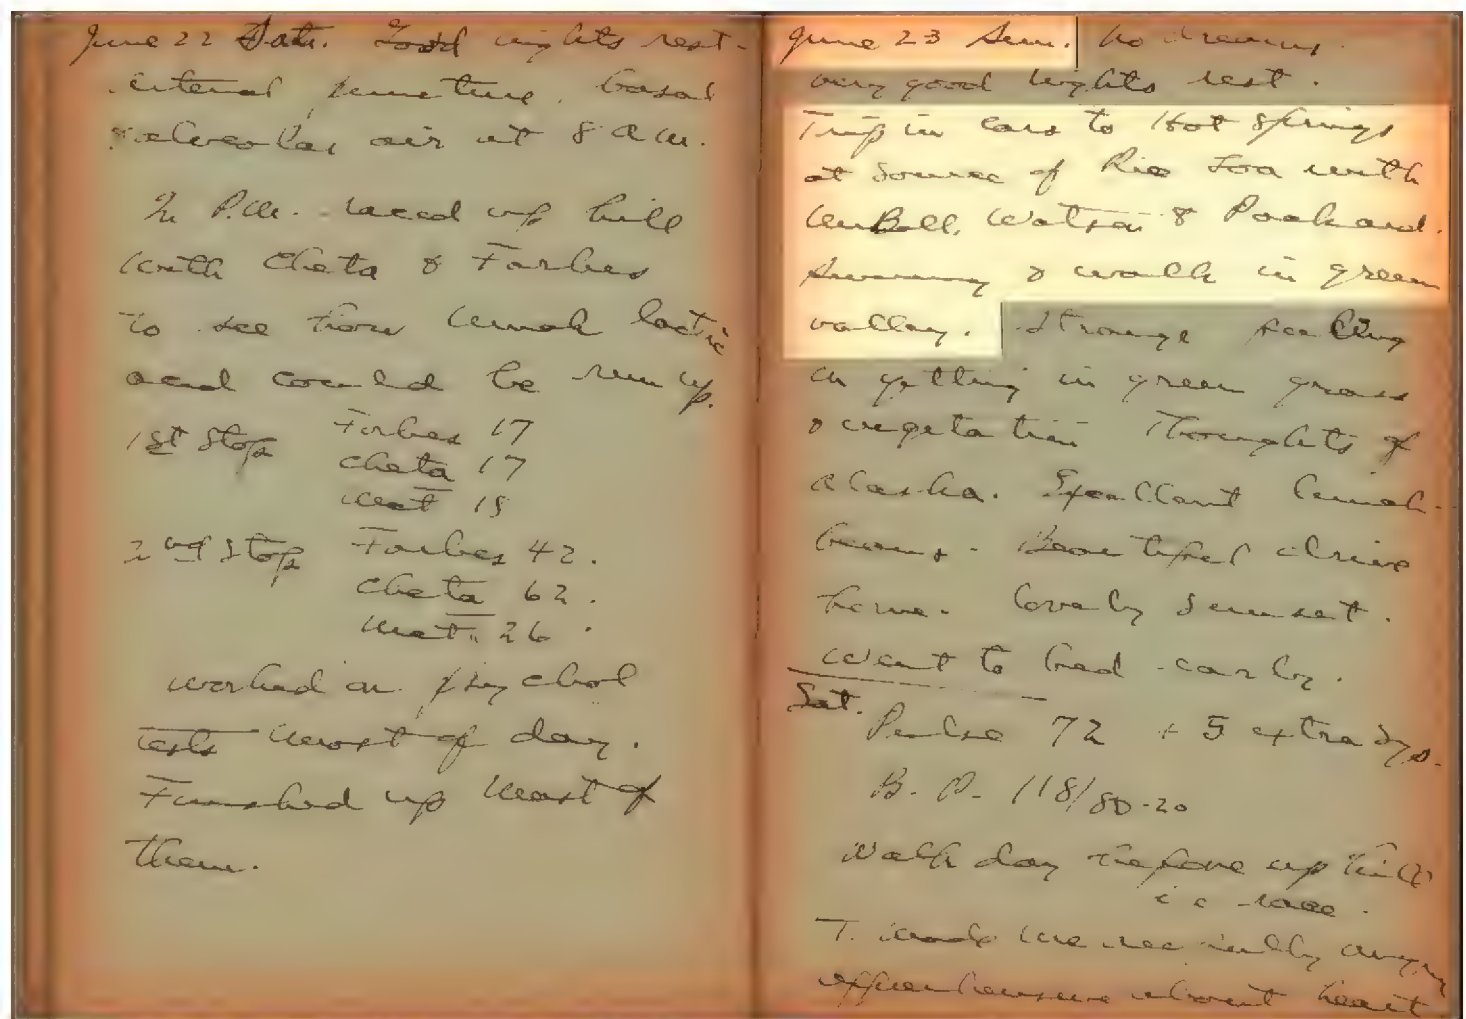 June 22 Sat. Good nights rest -
arterial puncture, basal
alveolar air at 8 A.M.
In P.M. raced up hill
with Cheta & Forbes
to see how much lactic
acid could be run up.
1st Stop Forbes 17
Cheta 17
15
2nd Stop Forbes 42.
Cheta 62.
26.
worked on psychol
tests most of day.
Finished up most of
them.
June 23 Sun. No dreams.
very good nights rest.
Trip in cars to Hot Springs
at source of Rio Loa with
Ball, Watson & Packard.
Swimming & walk in green
valley. Strange feeling
in getting in green grass
& vegetation Thoughts of
Alaska. Excellent lunch -
Beautiful drive
home. Lovely sunset.
Went to bed early.
Sat. Pulse 72 + 5 extra sys.
B. P. 118/80-20
Walk day before up hill
i e race.
T. made me mentally
apprehensive about heart